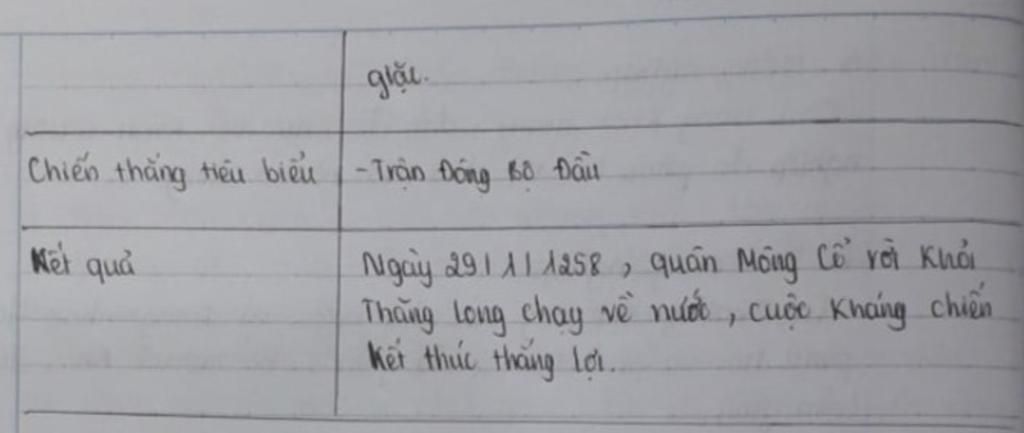 giặc.
Chiến thắng tiêu biểu - Trận Đông Bộ Đầu
Kết quả Ngày 29/1/1258, quân Mông Cổ rời khỏi
Thăng long chạy về nước, cuộc kháng chiến
kết thúc thắng lợi.